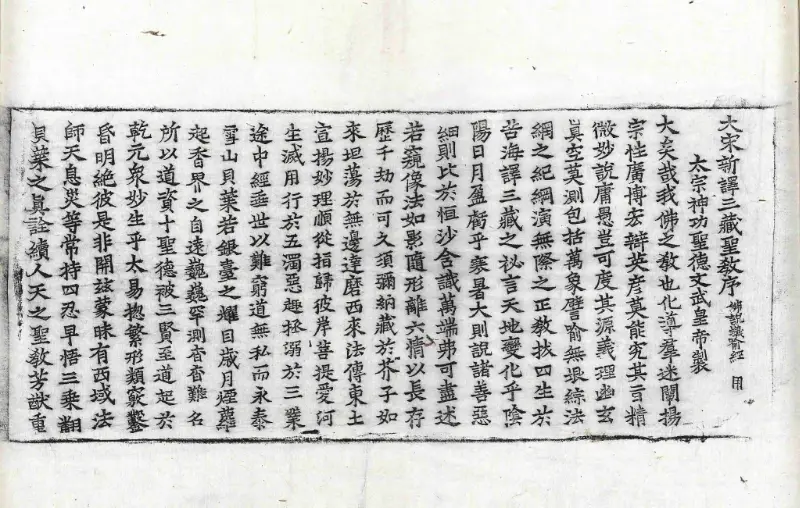 大宋新譯三藏聖教序 佛說譬喻經 用
太宗神功聖德文武皇帝製
大矣哉我佛之教也化導羣迷闡揚
宗性廣博宏辯英彥莫能究其言精
微妙說庸愚豈可度其源義理幽玄
真空莫測包括萬象譬喻無垠綜法
網之紀綱演無際之正教拔四生於
苦海譯三藏之祕言天地變化乎陰
陽日月盈虧乎寒暑大則說諸善惡
細則比於恒沙含識萬端弗可盡述
若窺像法如影隨形離六情以長存
歷千劫而可久須彌納藏於芥子如
來坦蕩於無邊達磨西來法傳東土
宣揚妙理順從指歸彼岸菩提愛河
生滅用行於五濁惡趣拯溺於三業
途中經垂世以難窮道無私而永泰
雪山貝葉若銀臺之耀目歲月煙蘿
起香界之自遠巍巍罕測杳杳難名
所以道資十聖德被三賢至道起於
乾元衆妙生乎太易揔繁形類竅鑿
昏明絕彼是非開茲蒙昧有西域法
師天息災等常持四忍早悟三乘翻
貝葉之真詮續人天之聖教芳猷重